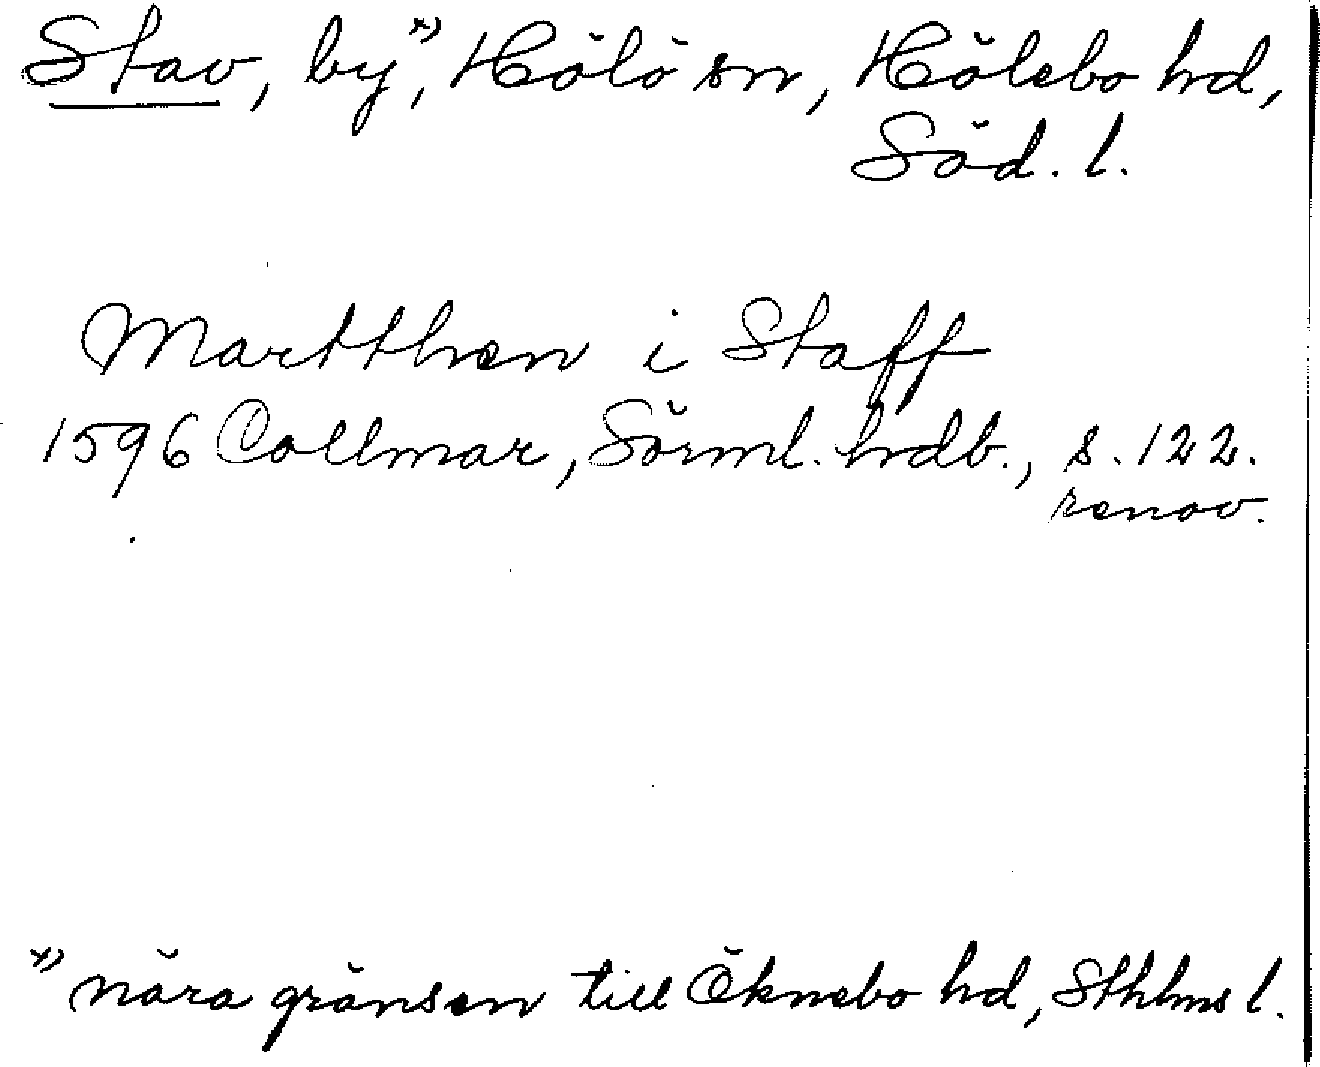 Stav, by x), Hölö sn, Hölebo hd,
Söd. l.
Martthen i Staff
1596 Collmar, Sörml. hrdb., s. 122.
renov.
x) nära gränsen till Öknebo hd, Sthlms l.